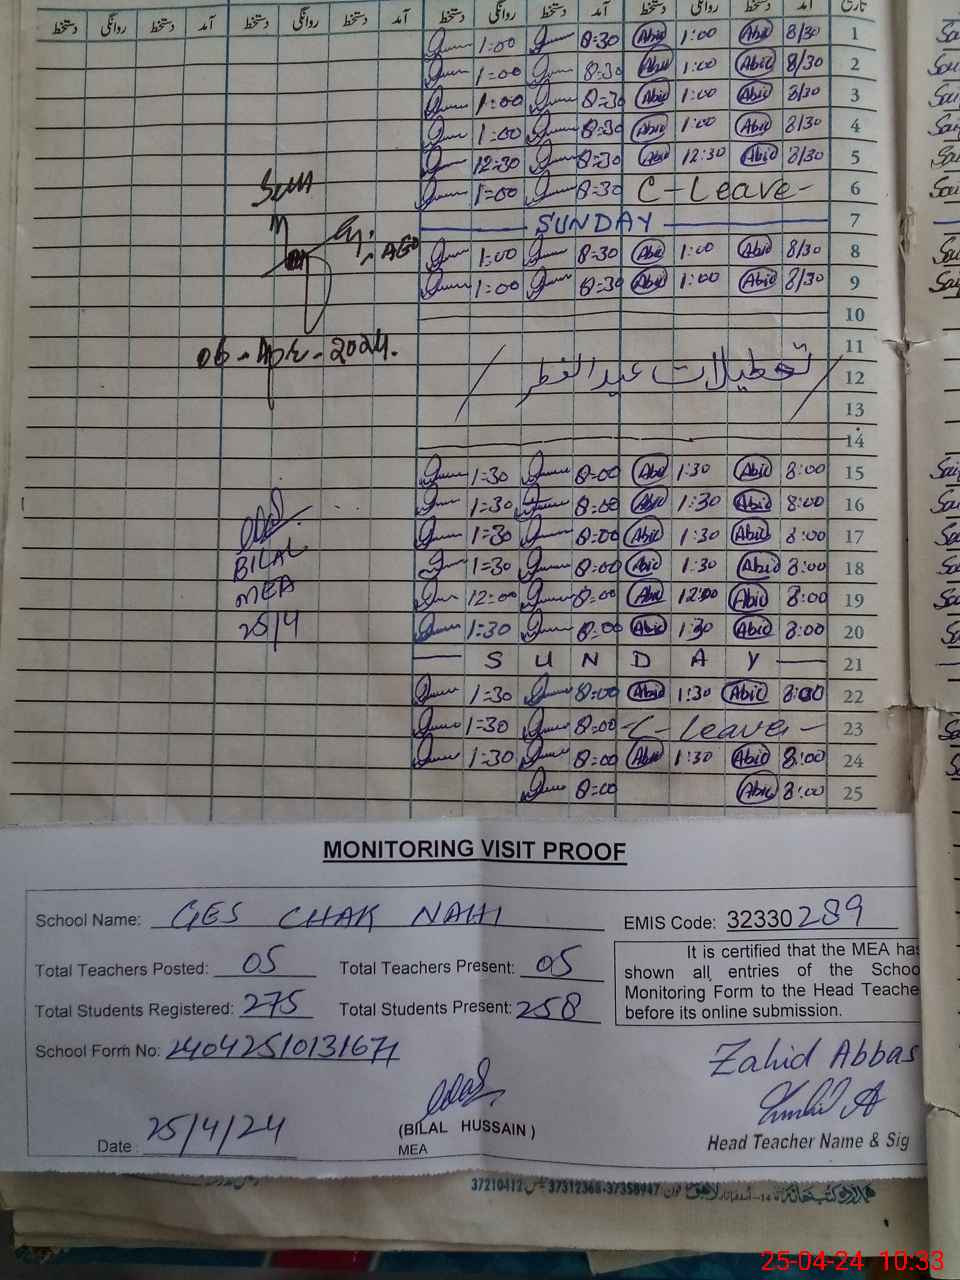 دستخط روانگی دستخط آمد دستخط روانگی دستخط آمد دستخط روانگی دستخط آمد دستخط روانگی دستخط آمد تاریخ
1:00 8=30 Abid 1:00 Abid 8/30 1
1=00 8=30 Abid 1:00 Abid 8/30 2
1=00 8=30 Abid 1:00 Abid 8/30 3
1=00 8=30 Abid 1:00 Abid 8/30 4
12=30 8=30 Abid 12:30 Abid 8/30 5
1=00 8=30 C-Leave- 6
SUNDAY 7
1=00 8=30 Abid 1:00 Abid 8/30 8
1=00 8=30 Abid 1:00 Abid 8/30 9
10
11
تعطیلات عیدالفطر 12
13
14
AEO
06-Apr-2024.
1=30 8=00 Abid 1:30 Abid 8:00 15
1=30 8=00 Abid 1:30 Abid 8:00 16
1=30 8=00 Abid 1:30 Abid 8:00 17
1=30 8=00 Abid 1:30 Abid 8:00 18
12=00 8=00 Abid 12:00 Abid 8:00 19
1=30 8=00 Abid 1:30 Abid 8:00 20
SUNDAY 21
1=30 8=00 Abid 1:30 Abid 8:00 22
1=30 8=00 -C-Leave- 23
1=30 8=00 Abid 1:30 Abid 8:00 24
8=00 Abid 8:00 25
BILAL
MEA
25/4
MONITORING VISIT PROOF
School Name: GES CHAK NAHI EMIS Code: 32330289
Total Teachers Posted: 05 Total Teachers Present: 05
Total Students Registered: 275 Total Students Present: 258
School Form No:
It is certified that the MEA has
shown all entries of the Schoo
Monitoring Form to the Head Teache
before its online submission.
Zahid Abbas
Date: 25/4/24
(BILAL HUSSAIN)
MEA
Head Teacher Name & Sig
37210412 37312368-37358947 فون
25-04-24 10:33